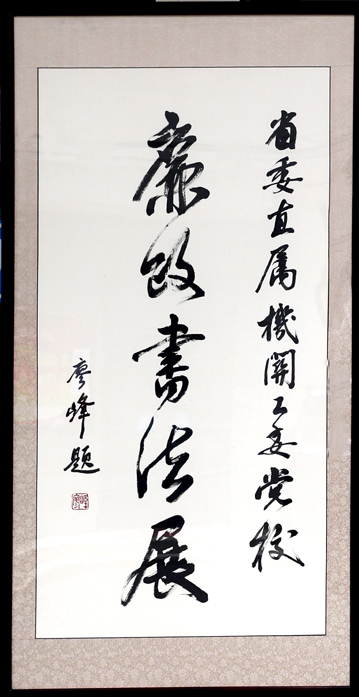 省委直属機関工委党校
廉政書法展
廖峰題